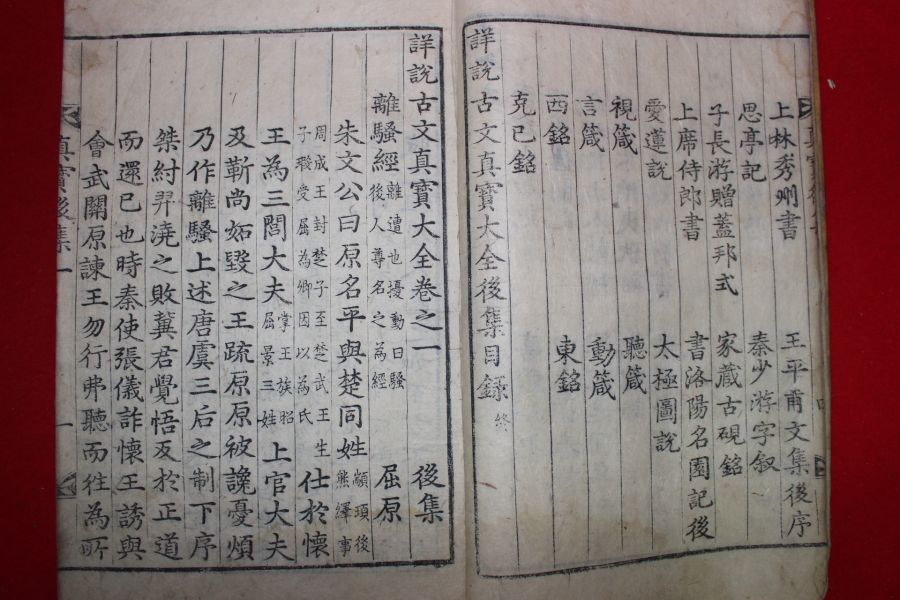 上林秀州書 王平甫文集後序
思亭記 秦少游字叙
子長游贈蓋邦式 家蔵古硯銘
上席侍郎書 書洛陽名園記後
愛蓮說 太極圖說
視箴 聽箴
言箴 動箴
西銘 東銘
克已銘
詳說古文真寶大全後集目錄 終
詳說古文真寶大全卷之一 後集
離騷經 離遭也擾動曰騷後人尊名之為經 屈原
朱文公曰原名平與楚同姓 顓頊後熊繹事周成王封楚子至楚武王生子瑕受屈為卿因以為氏 仕於懷
王為三閭大夫 掌王族昭屈景三姓 上官大夫
及靳尚妬毀之王疏原原被讒憂煩
乃作離騷上述唐虞三后之制下序
桀紂羿澆之敗冀君覺悟反於正道
而還已也時秦使張儀詐懷王誘與
會武關原諫王勿行弗聽而往為所
真寶後集一 一